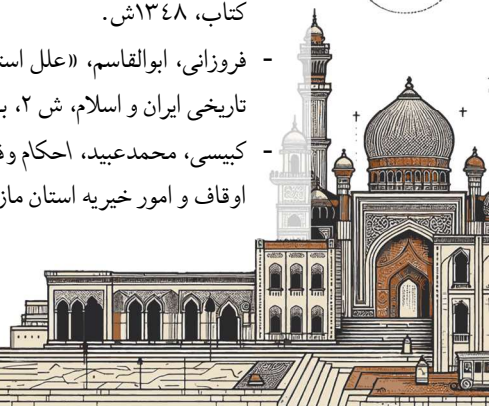 کتاب، ۱۳٤۸ش.
- فروزانی، ابوالقاسم، «علل
تاریخی ایران و اسلام، ش ۲،
- کبیسی، محمدعبید، احکام
اوقاف و امور خیریه استان